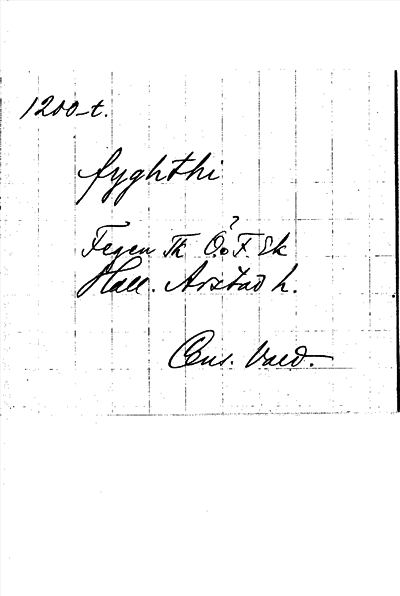 1200-t.
fyghthi
?
Fegen Th Ö. o F. Sk
Hall. Årstad h.
Cens. Vald.